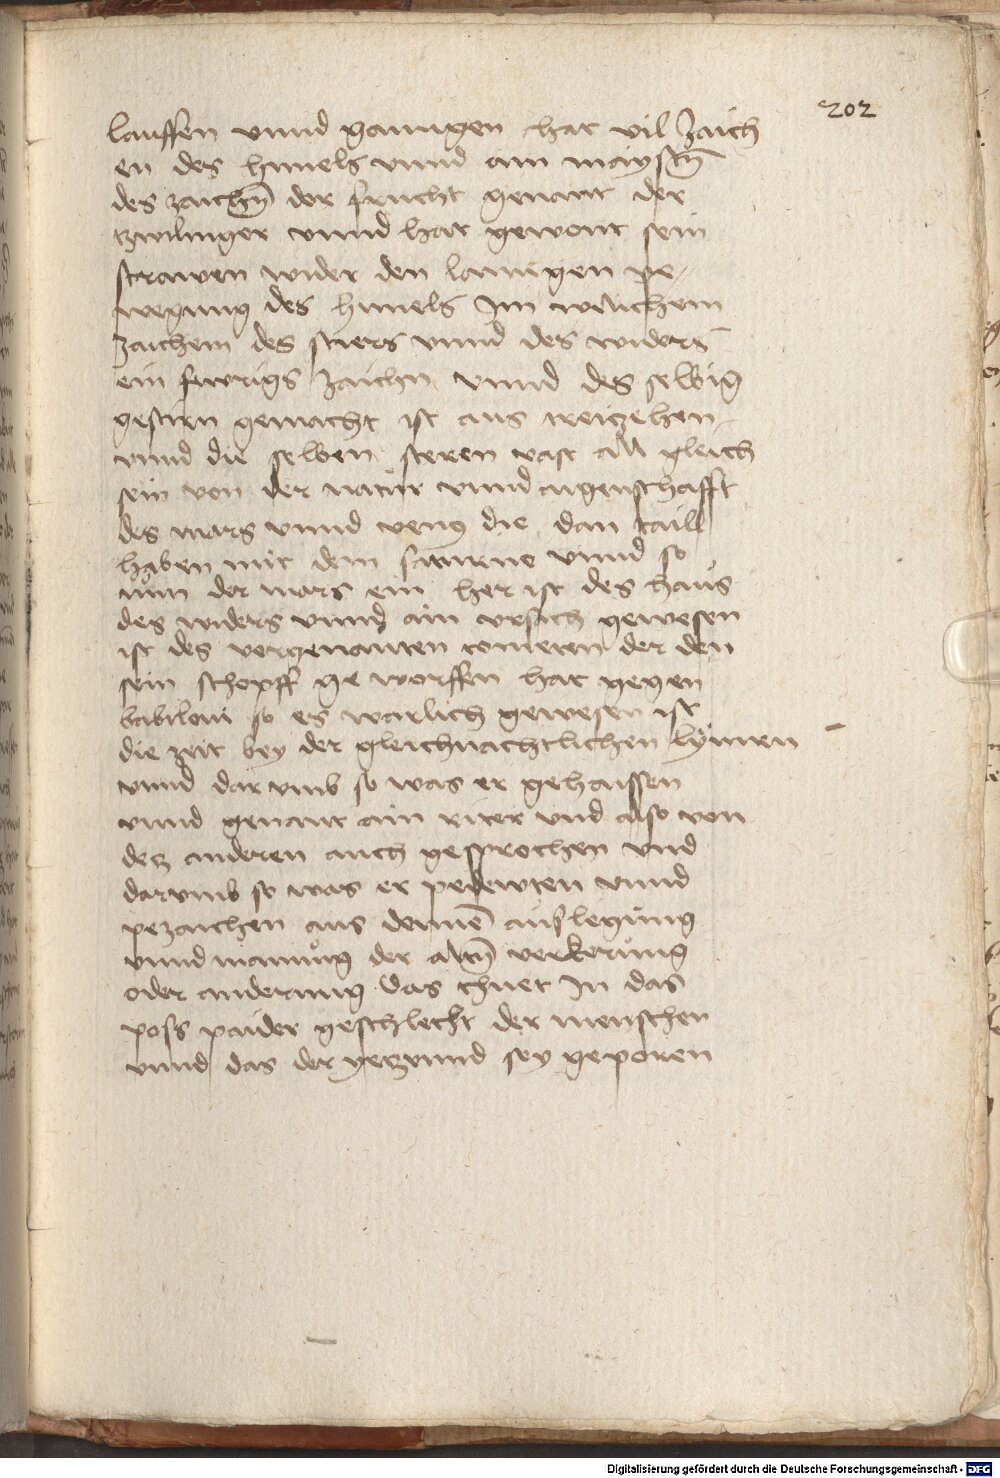 202
lauffen vnnd ganngen hat vil Zaich
en des himels vnnd am maysten̄
des zaichn̄ der frucht genant der
tzwilinger vnnd hat gewont sein
strawen wider den langen pe⸗
wegung des himels Im welichem
zaichem des stiers vnnd des widers
ein fewrigs zaichn vnnd des selbig
gestirn gemacht ist aus treizehen
vnnd die selben steren vast all gleich
sein von der natur vnnd aigenschafft
des mars vnnd venus die dan taill
haben mit dem saturno vnnd so
nun der mars ein her ist des haus
des widers vnnd ain vrsach gewesen
ist des vorgenanten cometen der den
sein schopff ge worffen hat gegen
babiloni so es warlich gewesen ist
die zeit bey der gleichnachtlichen lynien
vnnd dar vmb so was er gehaissen
vnnd genant ain riter vnd also von
detz anderen auch gesprochen vnd
darvmb so was er pedewten vnnd
pezaichen aus deine auslegung
vnnd manung der altn̄ verkerung
oder anderung das thuet In das
poss paider geschlecht der menschen
vnnd das der yetzvnnd sey geporen
Digitalisierung gefördert durch die Deutsche Forschungsgemeinschaft - DFG